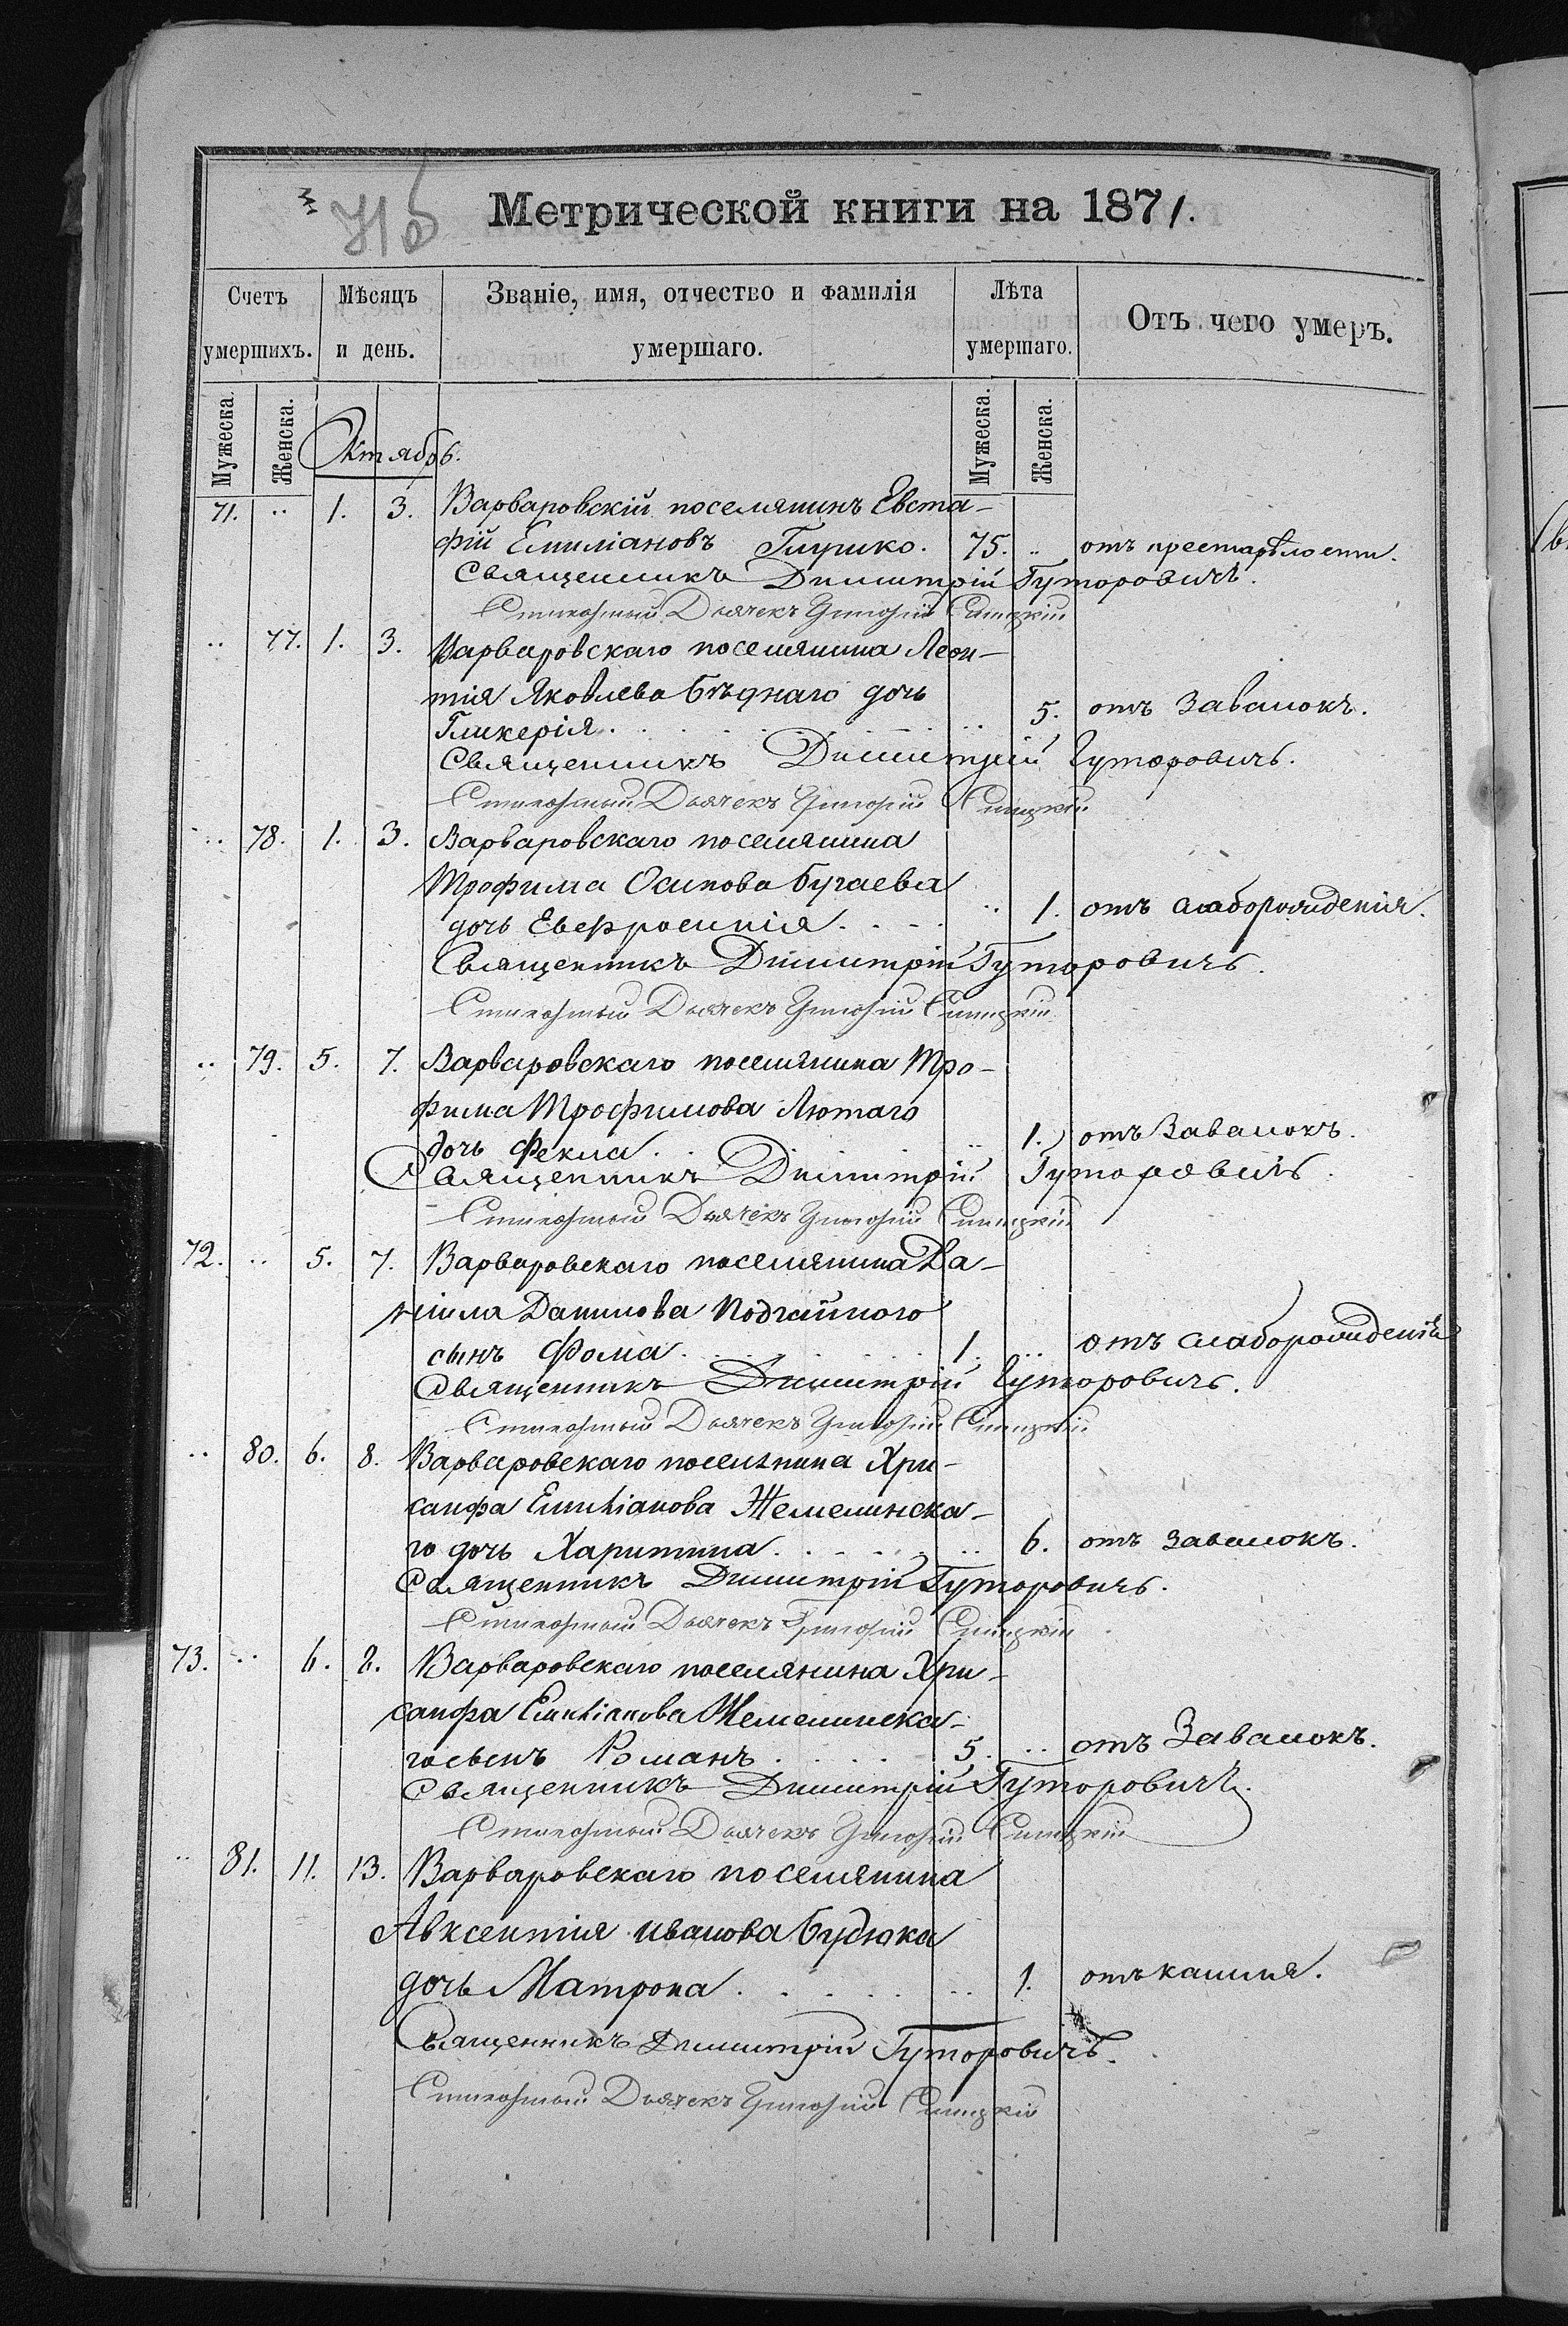 71б
Метрической книги на 1871.
Счетъ умершихъ. Мѣсяцъ и день. Званіе, имя, отчество и фамилія умершаго. Лѣта умершаго. Отъ чего умеръ.
Мужеска. Женска. Мужеска. Женска.
Октябрь.
71. .. 1. 3. Варваровскій поселянинъ Евста-
фій Емиліановъ 75. .. отъ престарѣлости.
Священникъ Димитрій Гуторовичъ.
Стихарный Дьячекъ Григорій Синицкій
.. 77. 1. 3. Варваровскаго поселянина Леон-
тія Яковлева Бѣднаго дочь
Гликерія. .. 5. отъ Завалокъ.
Священникъ Димитрій Гуторовичъ.
Стихарный Дьячекъ Григорій Синицкій
.. 78. 1. 3. Варваровскаго поселянина
Трофима Осипова Бугаева
дочь Евфросинія. .. 1. отъ слаборожденія.
Священникъ Димитрій Гуторовичъ.
Стихарный Дьячекъ Григорій Синицкій
.. 79. 5. 7. Варваровскаго поселянина Тро-
фима Трофимова Лютаго
дочь Фекла. .. 1. отъ Завалокъ.
Священникъ Димитрій Гуторовичъ.
Стихарный Дьячекъ Григорій Синицкій
72. .. 5. 7. Варваровскаго поселянина Да-
ніила Данилова
сынъ Фома. 1. .. отъ слаборожденія
Священникъ Димитрій Гуторовичъ.
Стихарный Дьячекъ Григорій Синицкій
.. 80. 6. 8. Варваровскаго поселянина Хри-
санфа Емиліанова Жемелинска-
го дочь Харитина. .. 6. отъ завалокъ.
Священникъ Димитрій Гуторовичъ.
Стихарный Дьячекъ Григорій Синицкій
73. .. 6. 8. Варваровскаго поселянина Хри-
санфа Емиліанова Жемелинска-
го сынъ Романъ. 5. .. отъ Завалокъ.
Священникъ Димитрій Гуторовичъ.
Стихарный Дьячекъ Григорій Синицкій
.. 81. 11. 13. Варваровскаго поселянина
Авксентія Иванова Будюка
дочь Матрона. .. 1. отъ кашля.
Священникъ Димитрій Гуторовичъ.
Стихарный Дьячекъ Григорій Синицкій